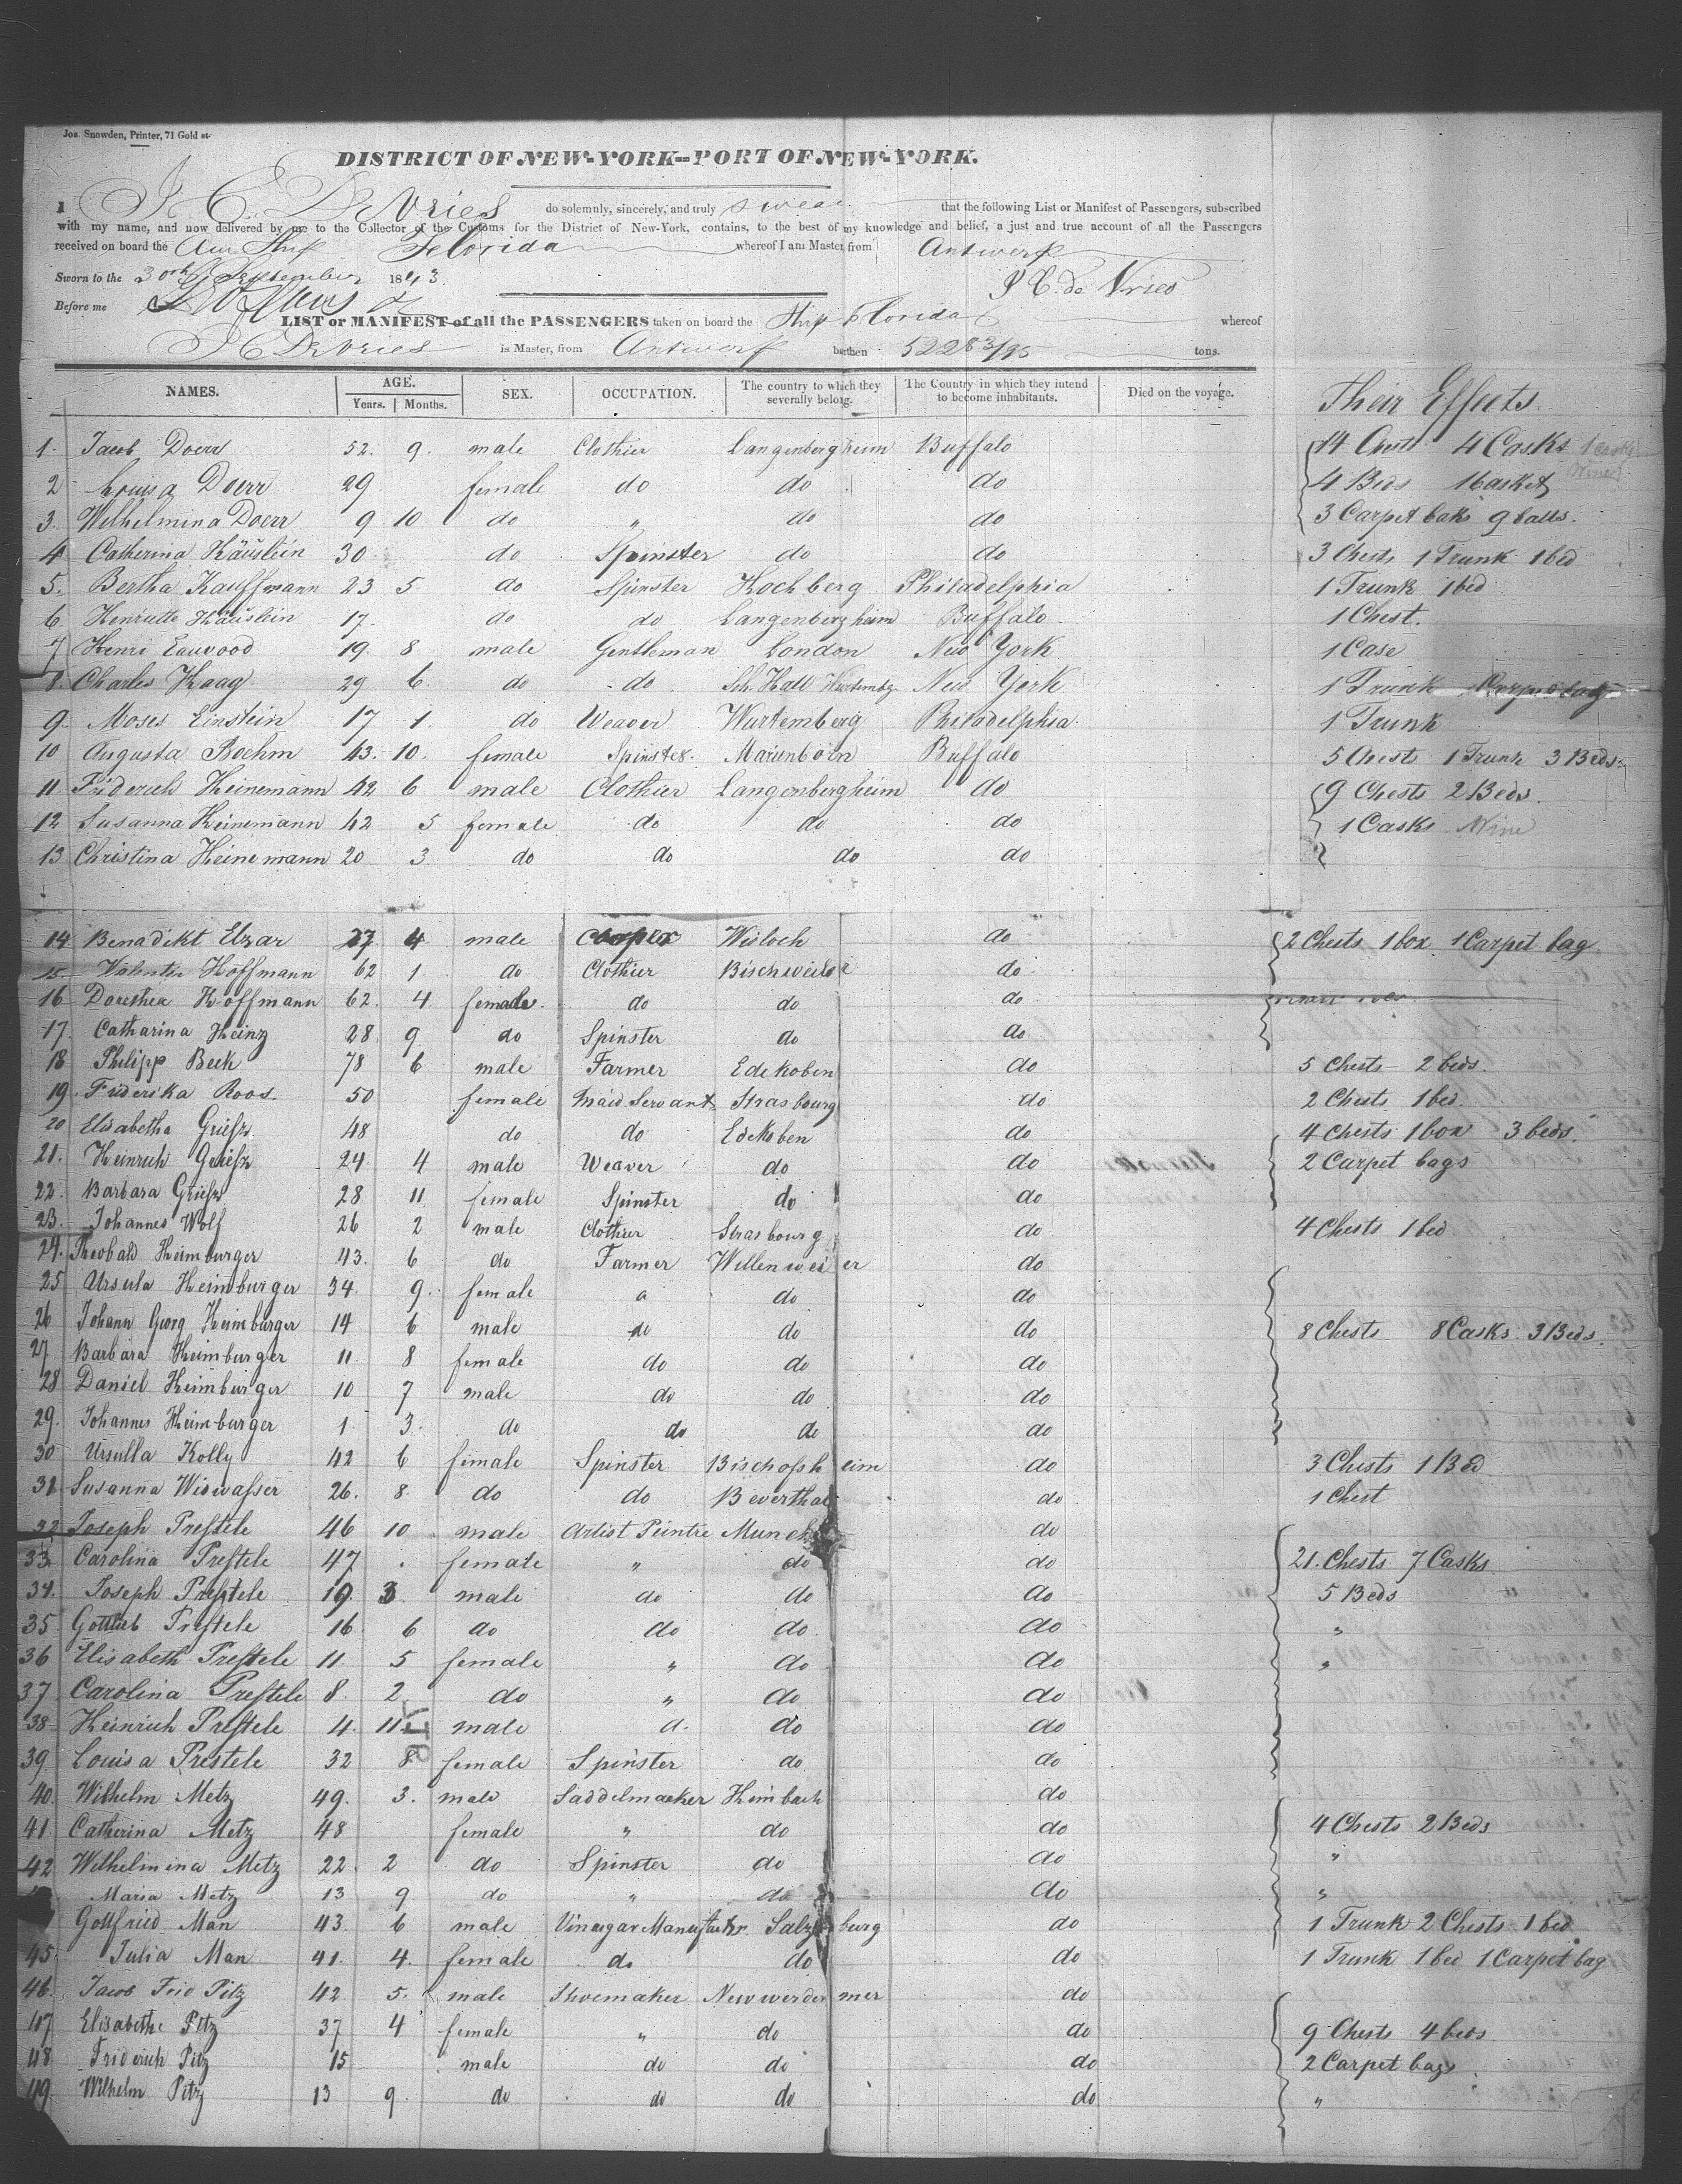 Jos. Snowden, Printer, 71 Gold st.
DISTRICT OF NEW-YORK--PORT OF NEW-YORK.
I J C DeVries do solemnly, sincerely, and truly swear that the following List or Manifest of Passengers, subscribed
with my name, and now delivered by me to the Collector of the Customs for the District of New-York, contains, to the best of my knowledge and belief, a just and true account of all the Passengers
received on board the Am Ship Florida whereof I am Master, from Antwerp
Sworn to the 30th September 1843. J C. de Vries
Before me
LIST or MANIFEST of all the PASSENGERS taken on board the Ship Florida whereof
J C DeVries is Master, from Antwerp burthen 522 83/95 tons.
NAMES. AGE. Years. Months. SEX. OCCUPATION. The country to which they severally belong. The Country in which they intend to become inhabitants. Died on the voyage. Their Effects.
1. Jacob Doerr 52. 9. male Clothier Langenbergheim Buffalo 14 Chests 4 Casks
2 Louisa Doerr 29 female do do do 4 Beds 1 basket
3. Wilhelmina Doerr 9 10 do " do do 3 Carpet baks 9 balls.
4 Catherina Häuslein 30. do Spinster do do 3 Chests 1 Trunk 1 bed
5. Bertha Kauffmann 23 5 do Spinster Hochberg Philadelphia 1 Trunk 1 bed
6 Henriette Häuslein 17. do do Langenbergheim Buffalo 1 Chest.
7 Henri Eauvood 19. 8 male Gentleman London New York 1 Case
8. Charles Haag 29 6 do do Sch. Hall Wurtembg. New York 1 Trunk
9. Moses Einstein 17 1. do Weaver Wurtemberg Philadelphia 1 Trunk
10 Augusta Boehm 43. 10. female Spinster. Marienborn Buffalo 5 Chests 1 Trunk 3 Beds.
11 Friderich Heinemann 42 6 male Clothier Langenbergheim do 9 Chests 2 Beds.
12 Susanna Heinemann 42 5 female do do do 1 Casks Wine
13 Christina Heinemann 20 3 do do do do
14 Benadikt Elzar 27 4 male Cooper Wisloch do 2 Chests 1 box 1 Carpet bag
15 Valentin Hoffmann 62 1 do Clothier Bischweiler do
16 Dorethea Hoffmann 62. 4 female. do do do
17. Catharina Heinz 28. 9 do Spinster do do
18 Philipp Beck 78 6 male Farmer Edekoben do 5 Chests 2 beds.
19. Friderika Roos. 50 female Maid Servant Strasbourg do 2 Chests 1 bed.
20 Elisabetha Griesz 48 do do Edekoben do 4 Chests 1 box 3 beds.
21. Heinrich Griesz 24. 4 male Weaver do do 2 Carpet bags
22. Barbara Griesz 28 11 female Spinster do do
23. Johannes Wolf 26 2 male Clothier Strasbourg do 4 Chests 1 bed
24. Theobald Heimburger 43. 6 do Farmer Willenweier do
25 Ursula Heimburger 34. 9. female a do do
26 Johann Georg Heimburger 14 6 male do do do 8 Chests 8 Casks. 3 Beds.
27 Barbara Heimburger 11. 8 female do do do
28 Daniel Heimburger 10 7 male do do do
29. Johannes Heimburger 1. 3. do do do do
30 Ursulla Kolly 42 6 female Spinster Bischofsheim do 3 Chests 1 Bed
31 Susanna Wiswasser 26. 8. do do Beverthal do 1 Chest
32 Joseph Prestele 46 10 male Artist Peintre Munch do
33 Carolina Prestele 47 . female " do do 21. Chests 7 Casks
34. Joseph Prestele 19. 3 male do do do 5 Beds
35 Gottlieb Prestele 16 6 do do do do "
36 Elisabeth Prestele 11. 5 female " do do "
37 Carolina Prestele 8. 2 do " do do
38 Heinrich Prestele 4. 11 male d. do do
39. Louisa Prestele 32 8 female Spinster do do
40. Wilhelm Metz 49. 3. male Saddelmaeker Heimbach do
41. Catherina Metz 48 female " do do 4 Chests 2 Beds
42 Wilhelmina Metz 22. 2 do Spinster do do "
Maria Metz 13 9 do " do do "
Gottfried Man 43. 6 male Vinaigar Manufactr Salzburg do 1 Trunk 2 Chests 1 bed
45. Julia Man 41. 4. female do do do 1 Trunk 1 bed 1 Carpet bag
46. Jacob Frid Pitz 42 5. male Shoemaker Newwerdermer do
47 Elisabethe Pitz 37 4 female " do do 9 Chests 4 beds
48 Friderich Pitz 15 male do do do 2 Carpet bags
49. Wilhelm Pitz 13 9. do do do do "